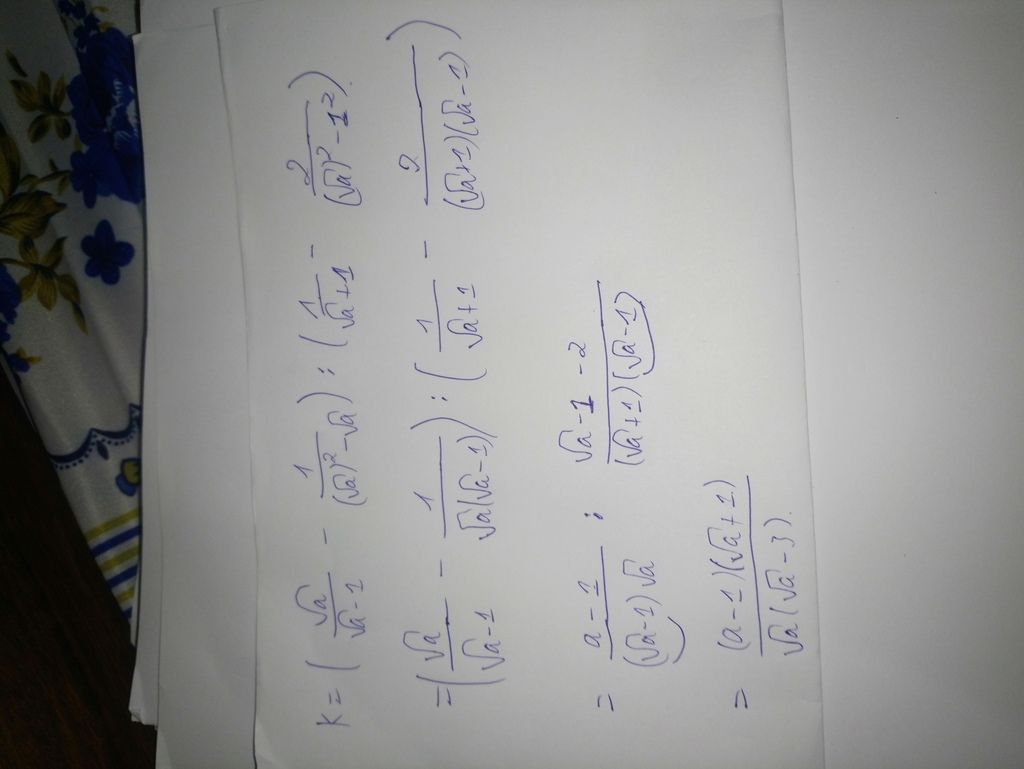 K = ( √a / (√a - 1) - 1 / ((√a)² - √a) ) : ( 1 / (√a + 1) - 2 / ((√a)² - 1²) )
= ( √a / (√a - 1) - 1 / (√a(√a - 1)) ) : ( 1 / (√a + 1) - 2 / ((√a + 1)(√a - 1)) )
= (a - 1) / ((√a - 1)√a) : (√a - 1 - 2) / ((√a + 1)(√a - 1))
= (a - 1)(√a + 1) / (√a(√a - 3)).